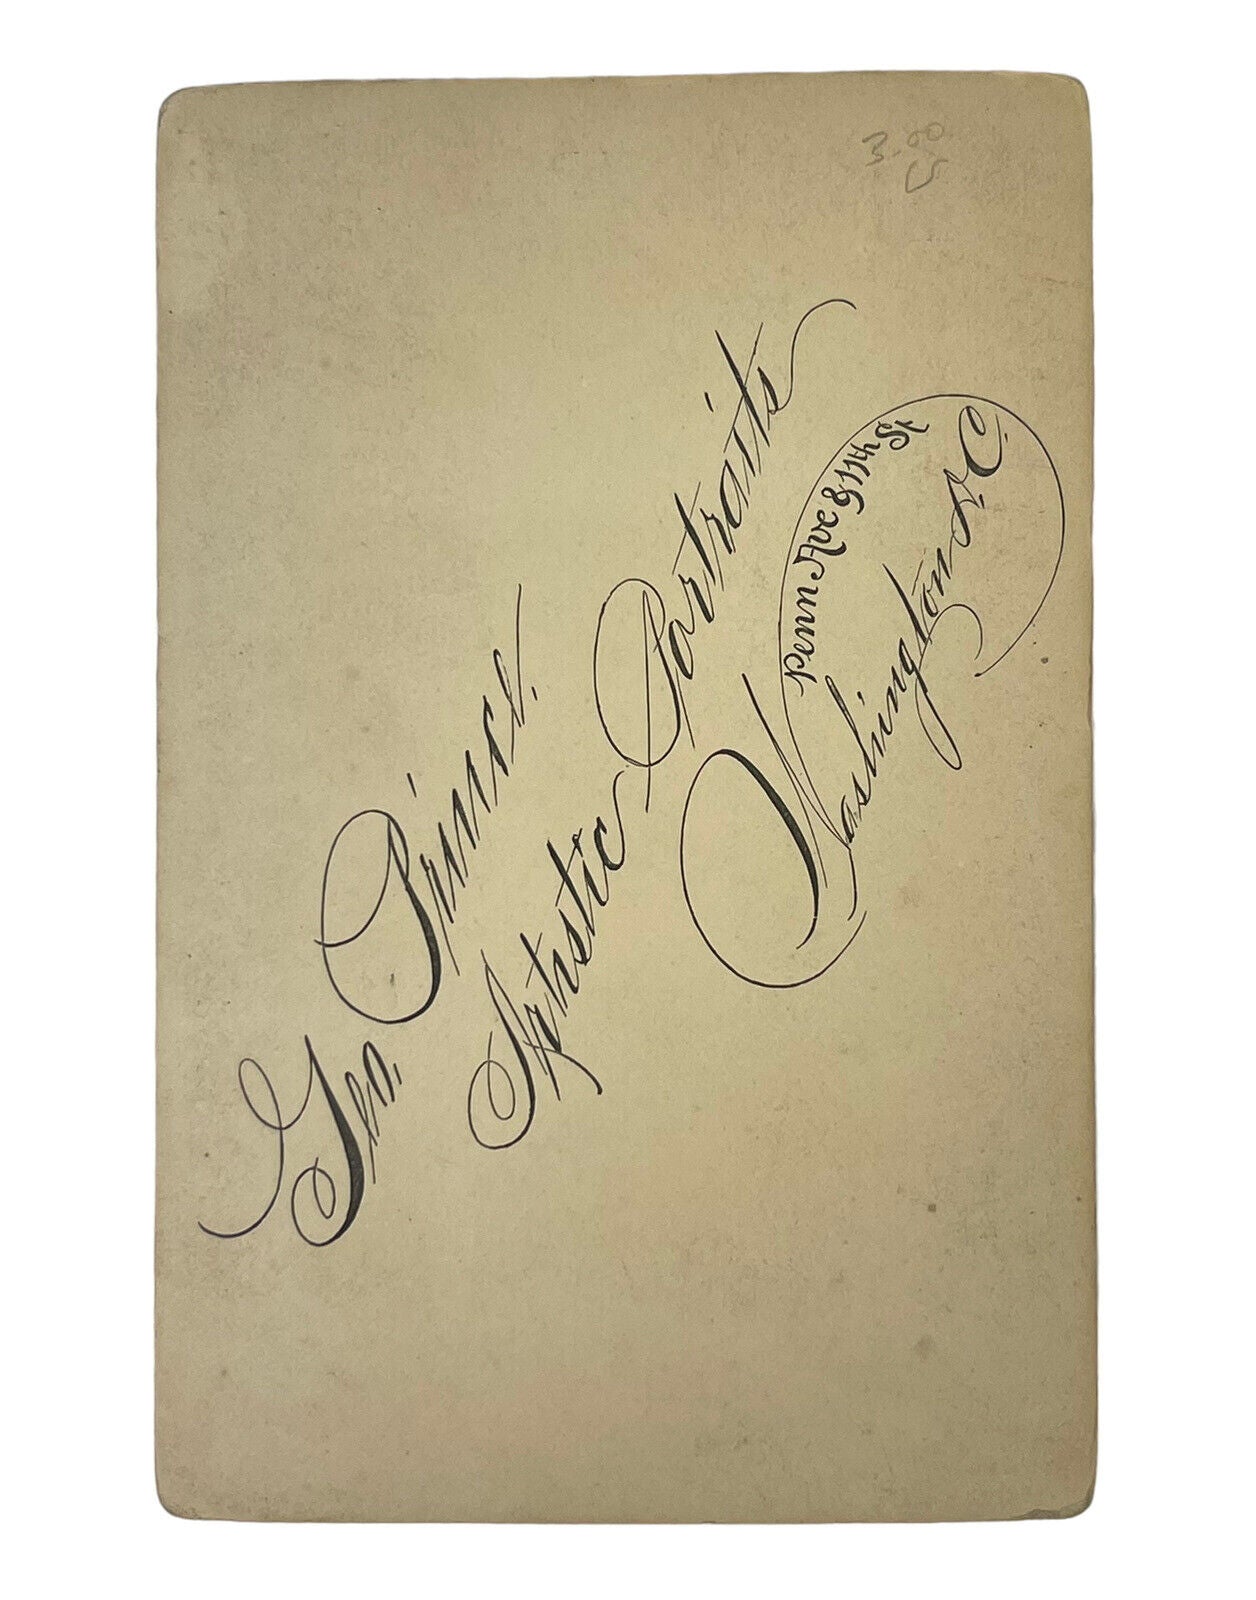 3.00
Geo. Prince.
Artistic Portraits
Penn Ave & 11th St
Washington D.C.